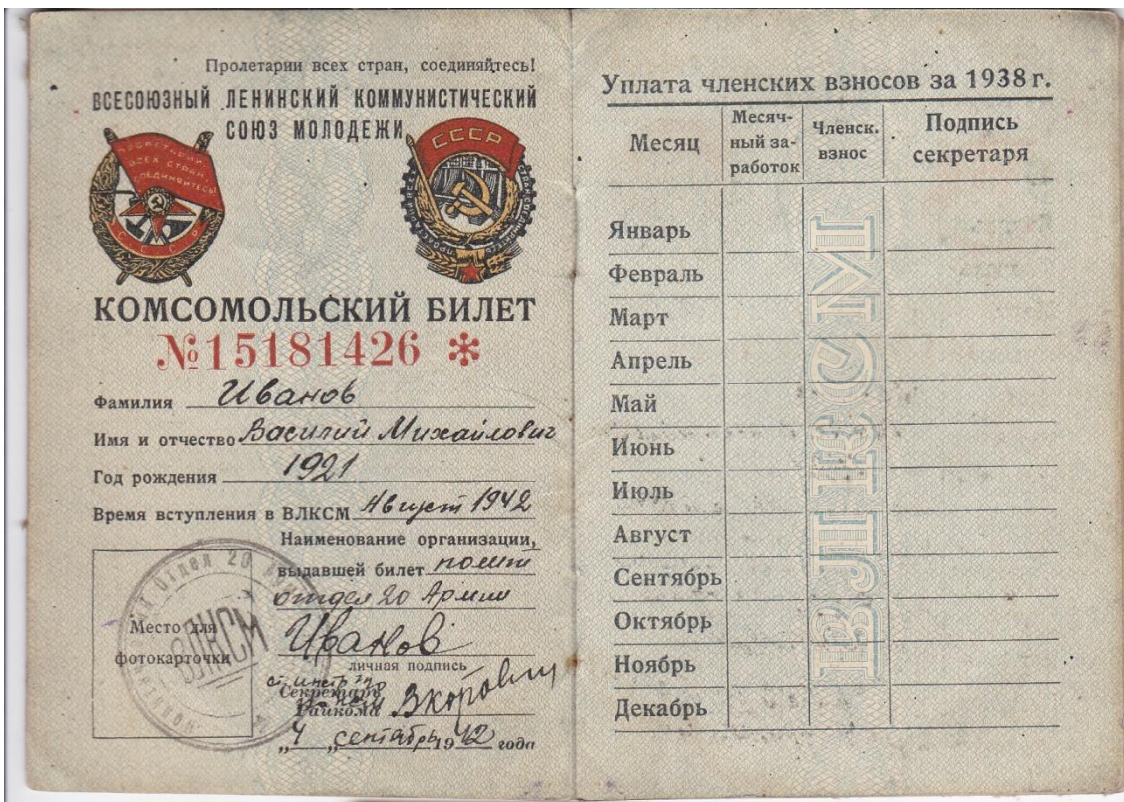 Пролетарии всех стран, соединяйтесь!
ВСЕСОЮЗНЫЙ ЛЕНИНСКИЙ КОММУНИСТИЧЕСКИЙ
СОЮЗ МОЛОДЕЖИ
ПРОЛЕТАРИИ
ВСЕХ СТРАН,
СОЕДИНЯЙТЕСЬ
СССР
СССР
КОМСОМОЛЬСКИЙ БИЛЕТ
№15181426 *
Фамилия Иванов
Имя и отчество Василий Михайлович
Год рождения 1921
Время вступления в ВЛКСМ Август 1942
Наименование организации,
выдавшей билет полит
отдел 20 Армии
Место для
фотокарточки
ВЛКСМ
Иванов
личная подпись
Секретарь
Райкома
"4" сентября 1942 года
Уплата членских взносов за 1938 г.
Месяц
Месяч-
ный за-
работок
Членск.
взнос
Подпись
секретаря
Январь
Февраль
Март
Апрель
Май
Июнь
Июль
Август
Сентябрь
Октябрь
Ноябрь
Декабрь
ВЛКСМ